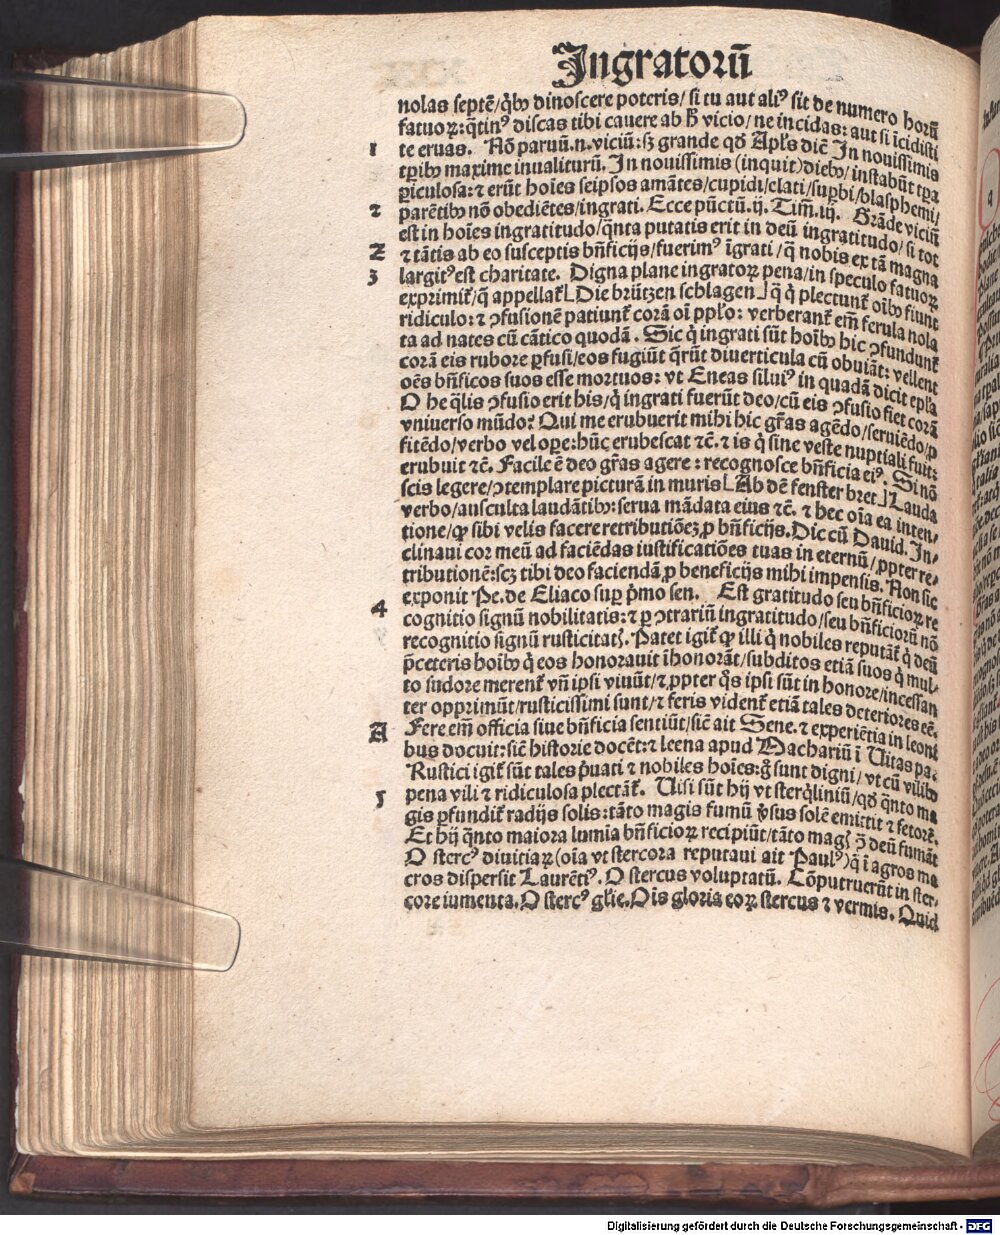 Ingratorū
nolas septē/q̇bꝰ dinoscere poteris/ si tu aut aliꝰ sit de numero horū
fatuoꝝ: q̄tinꝰ discas tibi cauere ab h̄ vicio/ ne incidas: aut si īcidisti
1 te eruas. Nō paruū.n.viciū:sꝫ grande qd̄ Apl's diē In nouissimis
tꝑibꝰ maxime inualiturū. In nouissimis (inquit) diebꝰ/ instabūt tꝑa
ꝑiculosa: ⁊ erūt hoīes seipsos amātes/cupidi/elati/suꝑbi/blasphemi/
2 parētibꝰ nō obediētes/ingrati. Ecce pūctū.ij. Tim̄.iij. Grāde viciū
est in hoīes ingratitudo/q̄nta putatis erit in deū ingratitudo/ si tot
2 ⁊ tātis ab eo susceptis bn̄ficijs/fuerimꝰ īgrati/q̄ nobis ex tā magna
3 largitꝰ est charitate. Digna plane ingratoꝝ pena/in speculo fatuoꝝ
exprimit᷑/q̄ appellat᷑ [Die brützen schlagen] q̄ q̇ plectunt᷑ oībꝰ fiunt
ridiculo: ⁊ ꝯfusionē patiunt᷑ corā oī pplo: verberant᷑ em̄ ferula nola
ta ad nates cū cātico quodā. Sic q̇ ingrati sūt hoībꝰ hic ꝯfundunt᷑
corā eis rubore ꝑfusi/eos fugiūt q̄rūt diuerticula cū obuiāt: vellent
oēs bn̄ficos suos esse mortuos: vt Eneas siluiꝰ in quadā dicit epl'a
O he q̄lis ꝯfusio erit his/q̇ ingrati fuerūt deo/cū eis ꝯfusio fiet corā
vniuerso mūdo? Qui me erubuerit mihi hic gr̄as agēdo/seruiēdo/ꝓ
fitēdo/verbo vel oꝑe: hūc erubescat ⁊c̄. ⁊ is q̇ sine veste nuptiali fuit:
erubuit ⁊c̄. Facile ē deo gr̄as agere: recognosce bn̄ficia eiꝰ. Si nō
scis legere/ꝯtemplare picturā in muris [Ab dē fenster bret] Lauda
verbo/ausculta laudātibꝰ: serua mādata eius ⁊c̄. ⁊ hec oīa ea inten/
tione/ꝙ sibi velis facere retributiōeꝫ ꝓ bn̄ficijs. Dic cū Dauid. In/
clinaui cor meū ad faciēdas iustificatiōes tuas in eternū/ꝓpter re/
tributionē:scꝫ tibi deo faciendā ꝓ beneficijs mihi impensis. Non sic
exponit Pe. de Eliaco suꝑ pmo sen. Est gratitudo seu bn̄ficioꝝ re
4 cognitio signū nobilitatis: ⁊ ꝑ ꝯtrariū ingratitudo/seu bn̄ficiorū nō
recognitio signū rusticitatꝭ. Patet igit᷑ ꝙ illi q̇ nobiles reputāt᷑ q̇ deū
p̄ceteris hoībꝰ q̇ eos honorauit īhonorāt/subditos etiā suos q̇ mul/
to sudore merent᷑ vn̄ ipsi viuūt/⁊ ꝓpter q̄s ipsi sūt in honore/incessan
ter opprimūt/rusticissimi sunt/⁊ feris vident᷑ etiā tales deteriores eē.
A Fere em̄ officia siue bn̄ficia sentiūt/sic̄ ait Sene. ⁊ experiētia in leoni
bus docuit: sic̄ historie docēt: ⁊ leena apud Machariū ī Vitas pa.
Rustici igit᷑ sūt tales p̄uati ⁊ nobiles hoīes: g̊ sunt digni/ vt cū vilibꝰ
5 pena vili ⁊ ridiculosa plectāt᷑. Uisi sūt hij vt sterq̇liniū/qd̄ q̄nto ma
gis ꝑfundit᷑ radijs solis: tāto magis fumū v̓sus solē emittit ⁊ fetorē.
Et hij q̄nto maiora lumīa bn̄ficioꝝ recipiūt/tāto magꝭ ꝯ̄ deū fumāt
O stercꝰ diuitiaꝝ (oīa vt stercora reputaui ait Paulꝰ) q̄ ī agros ma
cros dispersit Laurētiꝰ. O stercus voluptatū. Cōputruerūt in ster/
core iumenta. O stercꝰ gl'ie. Ois gloria eoꝝ stercus ⁊ vermis. Quid
Digitalisierung gefördert durch die Deutsche Forschungsgemeinschaft - DFG